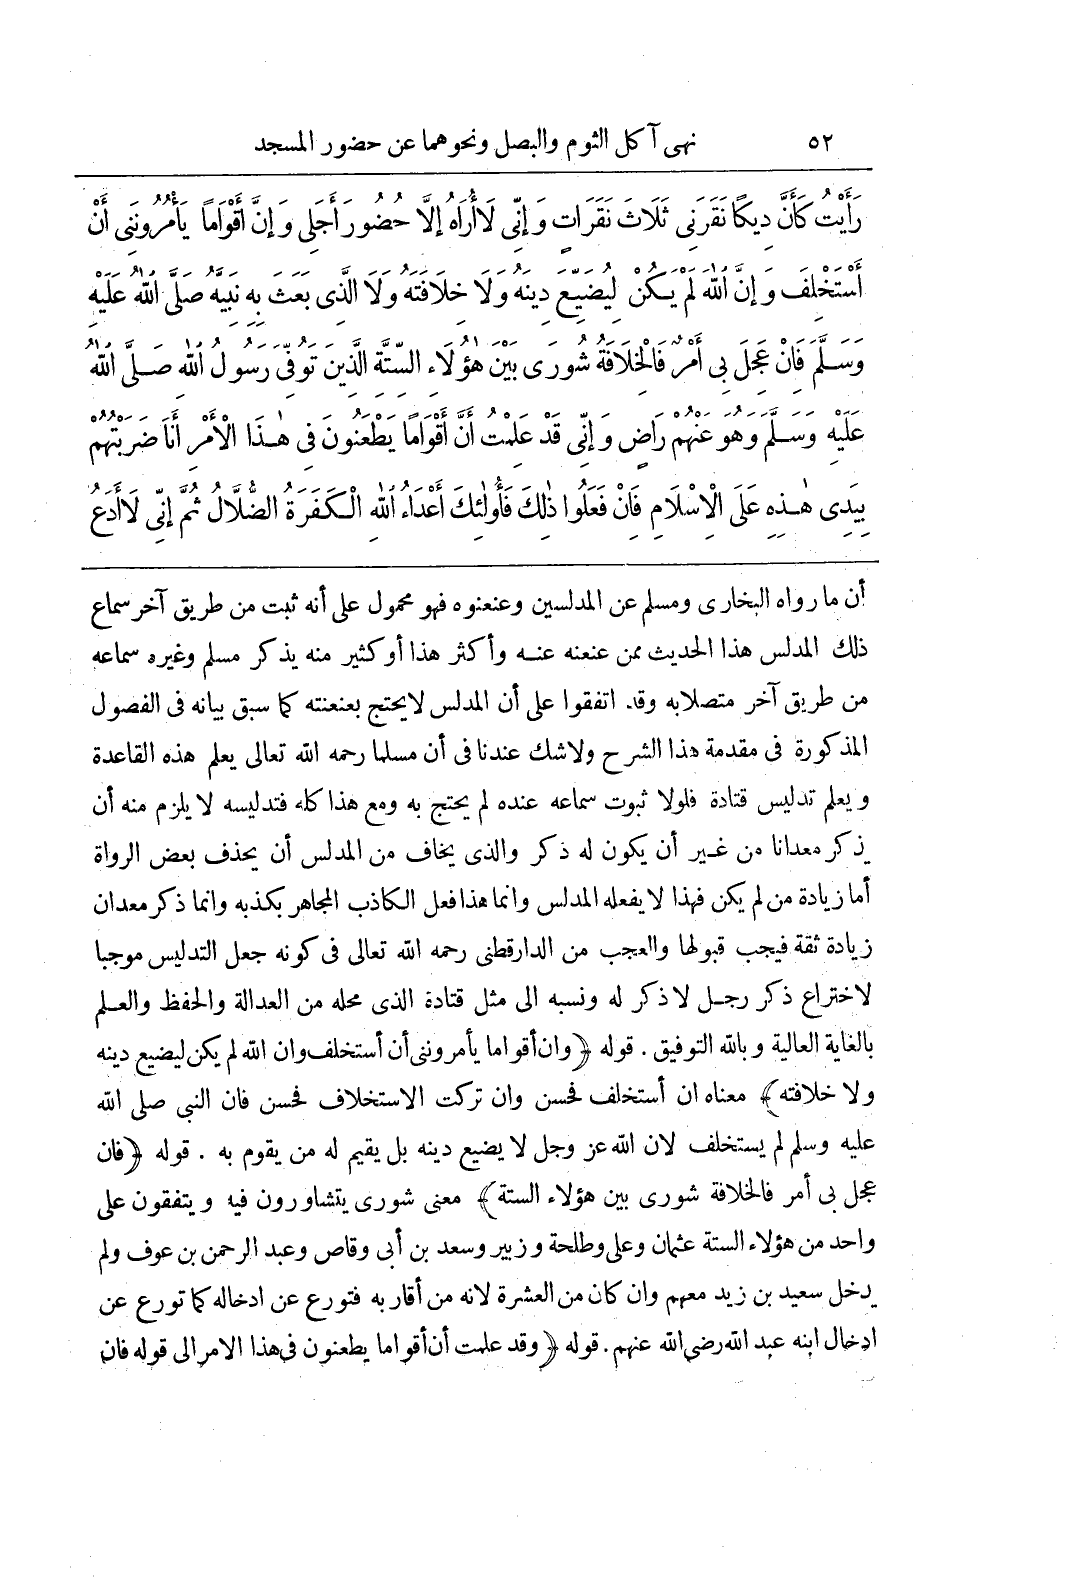 ٥٢ نهى آكل الثوم والبصل ونحوهما عن حضور المسجد
رَأَيْتُ كَأَنَّ دِيكًا نَقَرَنِى ثَلَاثَ نَقَرَاتٍ وَإِنِّى لَا أُرَاهُ إِلَّا حُضُورَ أَجَلِى وَإِنَّ أَقْوَامًا يَأْمُرُونَنِى أَنْ
أَسْتَخْلِفَ وَإِنَّ اللهَ لَمْ يَكُنْ لِيُضَيِّعَ دِينَهُ وَلَا خِلَافَتَهُ وَلَا الَّذِى بَعَثَ بِهِ نَبِيَّهُ صَلَّى اللهُ عَلَيْهِ
وَسَلَّمَ فَإِنْ عَجِلَ بِى أَمْرٌ فَالْخِلَافَةُ شُورَى بَيْنَ هٰؤُلَاءِ السِّتَّةِ الَّذِينَ تُوُفِّىَ رَسُولُ اللهِ صَلَّى اللهُ
عَلَيْهِ وَسَلَّمَ وَهُوَ عَنْهُمْ رَاضٍ وَإِنِّى قَدْ عَلِمْتُ أَنَّ أَقْوَامًا يَطْعَنُونَ فِى هٰذَا الْأَمْرِ أَنَا ضَرَبْتُهُمْ
بِيَدِى هٰذِهِ عَلَى الْإِسْلَامِ فَإِنْ فَعَلُوا ذٰلِكَ فَأُولٰئِكَ أَعْدَاءُ اللهِ الْكَفَرَةُ الضُّلَّالُ ثُمَّ إِنِّى لَا أَدَعُ
أن ما رواه البخارى ومسلم عن المدلسين وعنعنوه فهو محمول على أنه ثبت من طريق آخر سماع
ذلك المدلس هذا الحديث ممن عنعنه عنه وأكثر هذا أو كثير منه يذكر مسلم وغيره سماعه
من طريق آخر متصلا به وقد اتفقوا على أن المدلس لا يحتج بعنعنته كما سبق بيانه فى الفصول
المذكورة فى مقدمة هذا الشرح ولا شك عندنا فى أن مسلما رحمه الله تعالى يعلم هذه القاعدة
ويعلم تدليس قتادة فلولا ثبوت سماعه عنده لم يحتج به ومع هذا كله فتدليسه لا يلزم منه أن
يذكر معدانا من غير أن يكون له ذكر والذى يخاف من المدلس أن يحذف بعض الرواة
أما زيادة من لم يكن فهذا لا يفعله المدلس وانما هذا فعل الكاذب المجاهر بكذبه وانما ذكر معدان
زيادة ثقة فيجب قبولها والعجب من الدارقطنى رحمه الله تعالى فى كونه جعل التدليس موجبا
لاختراع ذكر رجل لا ذكر له ونسبه الى مثل قتادة الذى محله من العدالة والحفظ والعلم
بالغاية العالية وبالله التوفيق . قوله ﴿وان أقواما يأمروننى أن أستخلف وان الله لم يكن ليضيع دينه
ولا خلافته﴾ معناه ان أستخلف فحسن وان تركت الاستخلاف فحسن فان النبى صلى الله
عليه وسلم لم يستخلف لان الله عز وجل لا يضيع دينه بل يقيم له من يقوم به . قوله ﴿فان
عجل بى أمر فالخلافة شورى بين هؤلاء الستة﴾ معنى شورى يتشاورون فيه ويتفقون على
واحد من هؤلاء الستة عثمان وعلى وطلحة وزبير وسعد بن أبى وقاص وعبد الرحمن بن عوف ولم
يدخل سعيد بن زيد معهم وان كان من العشرة لانه من أقاربه فتورع عن ادخاله كما تورع عن
ادخال ابنه عبد الله رضى الله عنهم . قوله ﴿وقد علمت أن أقواما يطعنون فى هذا الامر الى قوله فان